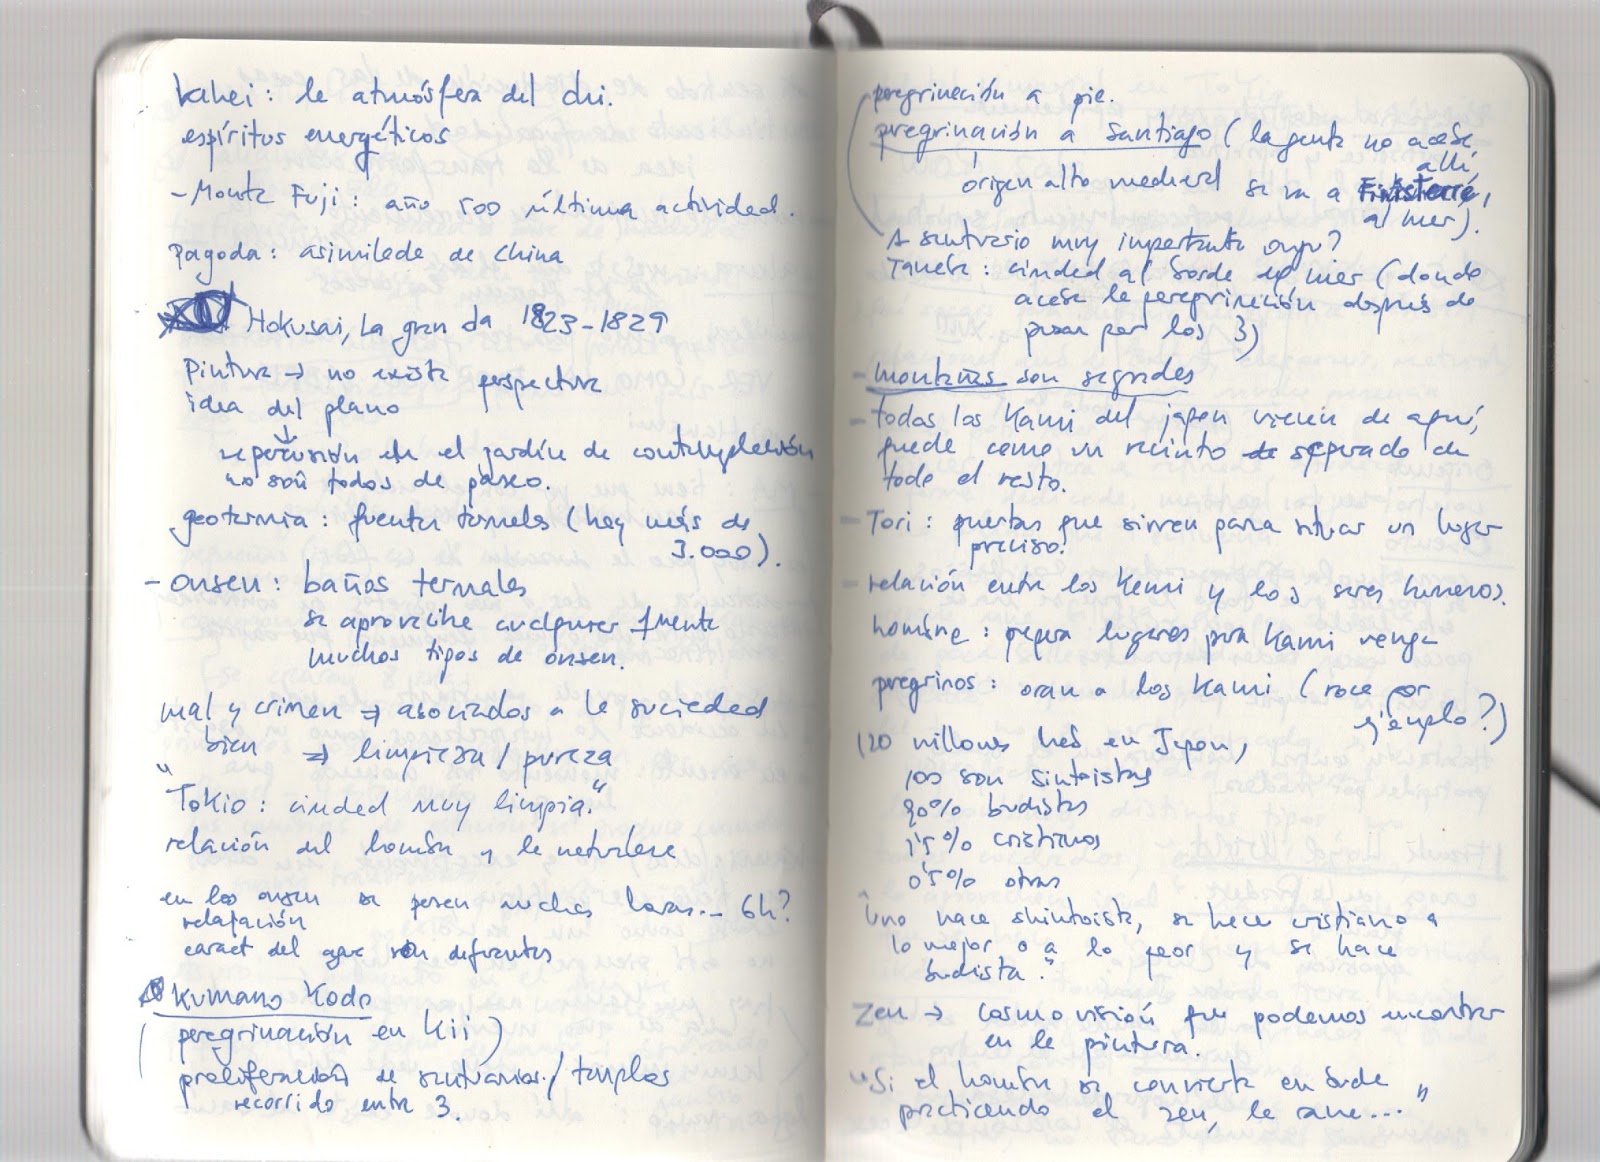 Kahei: la atmósfera del chi.
espíritus energéticos
- Monte Fuji: año 500 última actividad.
Pagoda: asimilada de China
Hokusai, la gran da 1823-1829
Pintura → no existe perspectiva
idea del plano
↓
repercusión en el jardín de contemplación
no son todos de paseo.
geotermia: fuentes termales (hay más de
3.000).
- onsen: baños termales
se aprovecha cualquier fuente
muchos tipos de onsen.
mal y crimen ⇒ asociados a la suciedad
bien ⇒ limpieza / pureza
"Tokio: ciudad muy limpia."
relación del hombre y la naturaleza
en los onsen se pasan muchas horas... 6h?
relajación
caract del agua son diferentes
Kumano Kodo
(peregrinación en Kii)
proliferación de santuarios / templos
recorrido entre 3.
peregrinación a pie.
peregrinación a Santiago (la gente no acaba
allí,
origen alto medieval se va a Finisterre,
al mar).
A santuario muy importante
Tanabe: ciudad al borde del mar (donde
acaba la peregrinación después de
pasar por los 3)
- montañas son sagradas
- todos los Kami del japon vienen de aquí,
puede como un recinto separado de
todo el resto.
- Tori: puertas que sirven para situar un lugar
preciso.
- relación entre los Kami y los seres humanos.
hombre: prepara lugares para Kami venga
peregrinos: oran a los Kami (roca por
ejemplo?)
120 millones hab en Japon,
100 son sintoistas
90% budistas
1'5% cristianos
0'5% otras
"Uno nace shintoista, se hace cristiano a
lo mejor o a lo peor y se hace
budista."
Zen → cosmovisión que podemos encontrar
en la pintura.
"Si el hombre se convierte en buda
practicando el zen, la rana..."